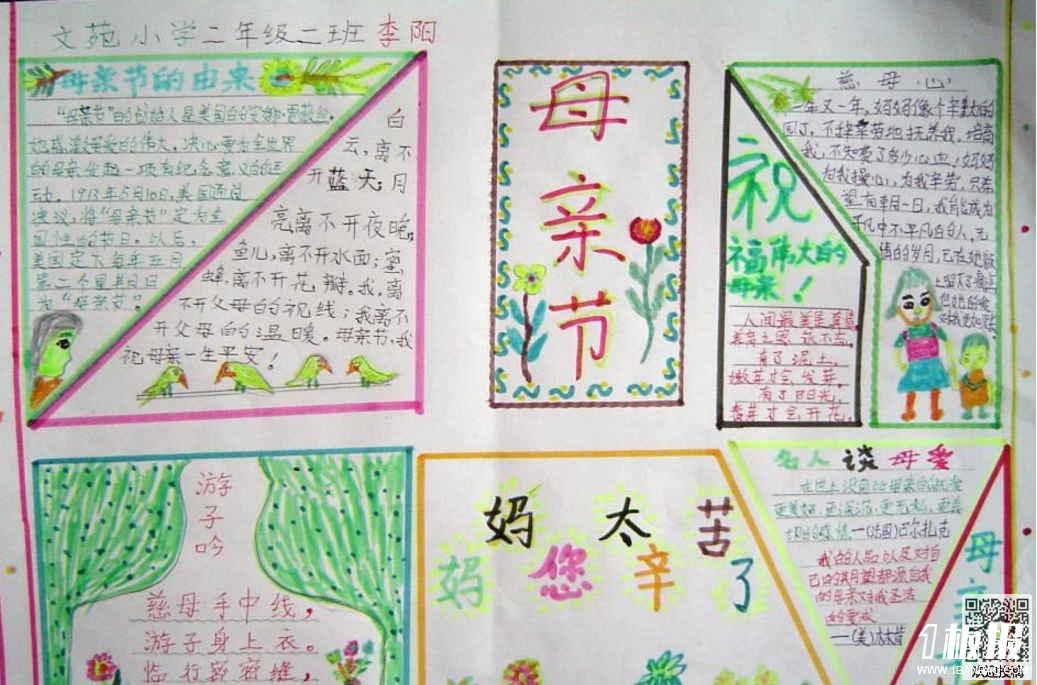 文苑小学二年级二班 李阳
母亲节的由来
"母亲节"的创始人是美国的安娜·
她感激母爱的伟大。决心要为全世界
的母亲发起一项有纪念意义的运
动。1913年5月10日,美国通过
决议,将"母亲节"定为全
国性的节日。以后,
美国定下每年五月
第二个星期日
为"母亲节"。
白
云,离不
开蓝天;月
亮离不开夜晚;
鱼儿,离不开水面;蜜
蜂,离不开花瓣。我,离
不开父母的视线;我离不
开父母的温暖。母亲节,我
祝母亲一生平安!
母亲节
祝
福伟大的
母亲!
人间最美是真情,
亲的恩
有了泥土,
嫩芽才会发芽。
有了阳光,
香芽才会开花。
慈母心
一年又一年,妈妈像个辛勤的
园丁,不辞辛劳地抚养我,培育
我,不知费了多少心血,妈妈
为我操心,为我辛劳,只希
望有朝一日,我能成为
平凡中不平凡的人。无
情的岁月,已在她脸
上留下了
游子吟
慈母手中线,
游子身上衣。
临行密密缝,
妈 太 苦
妈 您 辛 了
名人谈母爱
在世上没有比母亲的
更美好,更深沉,更无私,更真
切的感情—(法国)巴尔扎克
我的人品以及对自
己的期望都源自我
的母亲对我圣洁
的要求
—(美)
母
1板报
www.1B
欢迎投稿